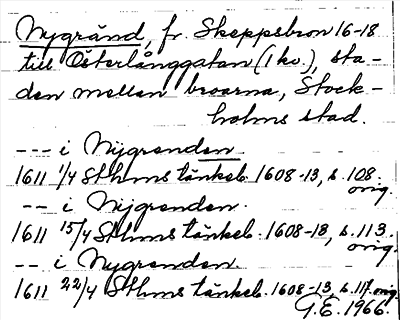 Nygränd, fr. Skeppsbron 16-18
till Österlånggatan (1 kv.), sta-
den mellan broarna, Stock-
holms stad.
--- i Nygrenden
1611 1/4 Sthms tänkeb. 1608-13, s. 108.
orig.
-- i Nygrenden.
1611 15/4 Sthms tänkeb. 1608-18, s. 113.
orig.
-- i Nygrenden
1611 22/4 Sthms tänkeb. 1608-13, s. 117. orig.
G.E. 1966.